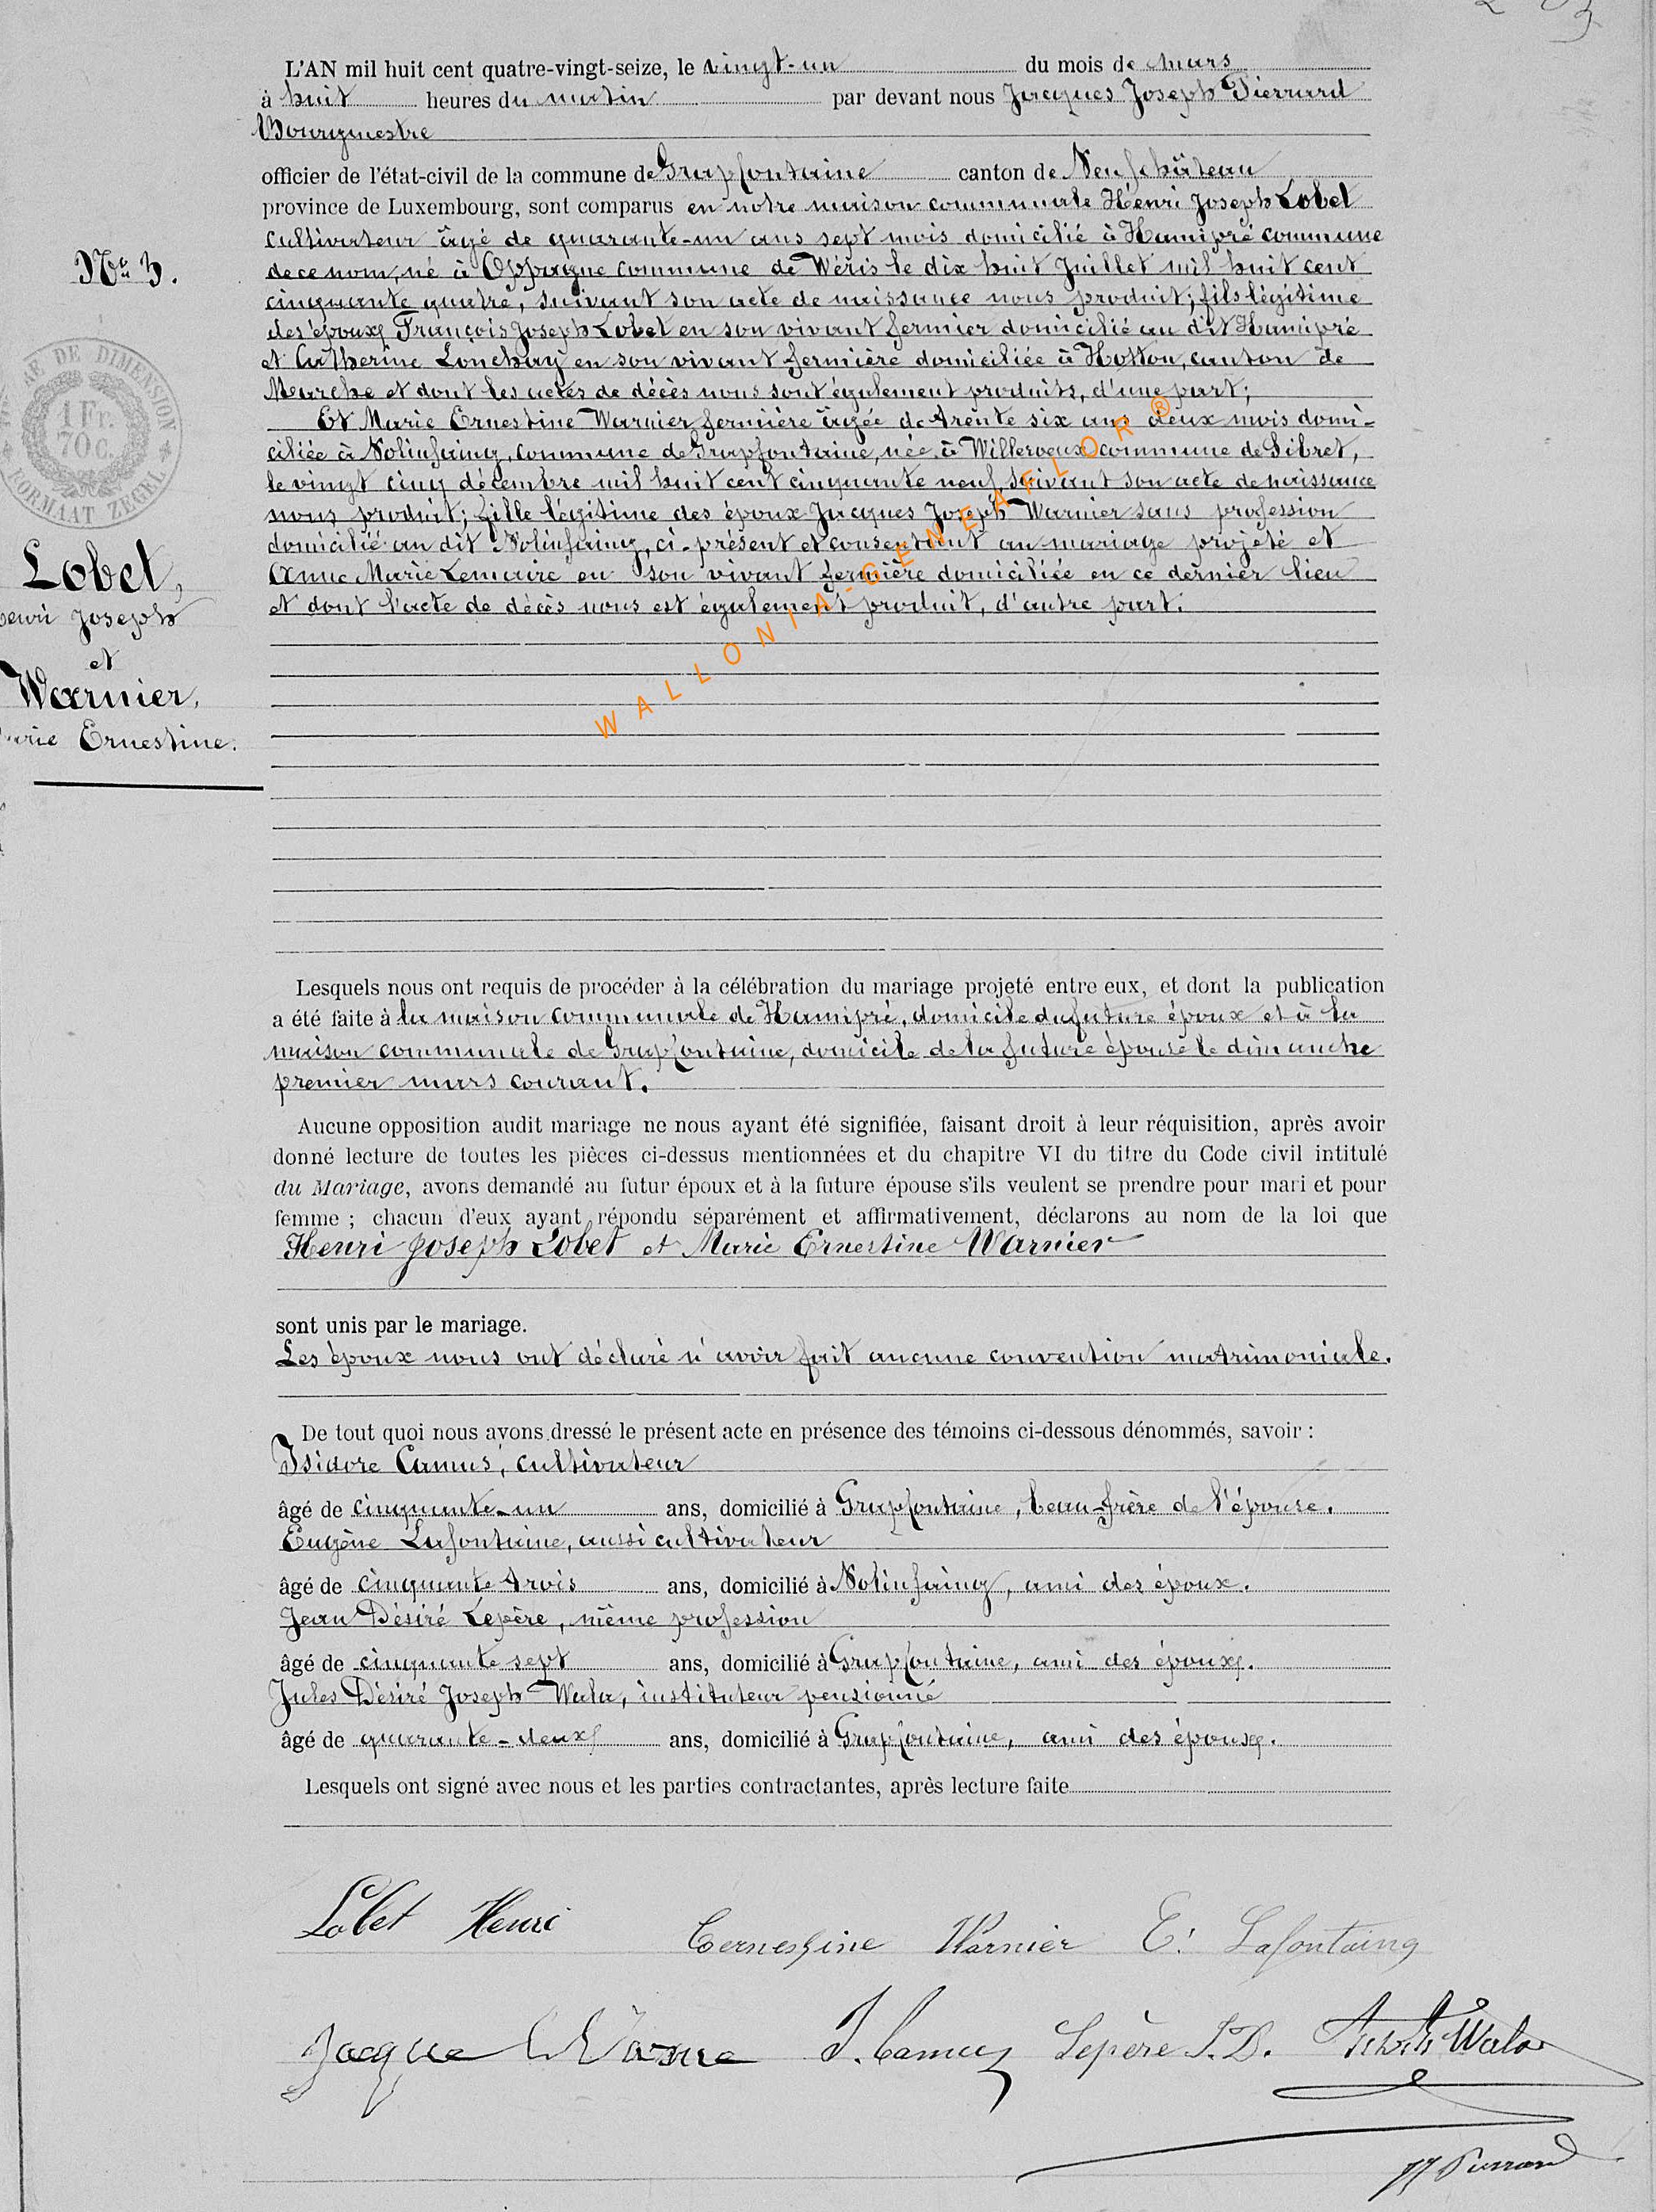 L'AN mil huit cent quatre-vingt-seize, le vingt-un du mois de mars
à huit heures du matin par devant nous Jacques Joseph Pierrard
Bourgmestre
officier de l'état-civil de la commune de Grapfontaine canton de Neufchâteau
province de Luxembourg, sont comparus en notre maison communale Hénri Joseph Lobet
cultivateur âgé de quarante-un ans sept mois domicilié à Hamipré commune
de ce nom, né à Oppagne commune de Wéris le dix huit Juillet mil huit cent
cinquante quatre, suivant son acte de naissance nous produit; fils légitime
des époux François Joseph Lobet en son vivant fermier domicilié au dit Hamipré
et Catherine Lonchay en son vivant fermière domiciliée à Hotton, canton de
Marche et dont les actes de décès nous sont également produits, d'une part;
Et Marie Ernestine Warnier fermière âgée de trente six ans deux mois domi-
ciliée à Nolinfaing, commune de Grapfontaine, née à Villeroux commune de Sibret,
le vingt cinq décembre mil huit cent cinquante neuf suivant son acte de naissance
nous produit; fille légitime des époux Jacques Joseph Warnier sans profession
domicilié au dit Nolinfaing, ci-présent et consentant au mariage projeté et
Anne Marie Lemaire en son vivant fermière domiciliée en ce dernier lieu
et dont l'acte de décès nous est également produit, d'autre part.
WALLONIA-GENEAFLOR®
No 3.
DE DIMENSION
1 Fr.
70 c.
FORMAAT ZEGEL
Lobet,
Henri Joseph
et
Warnier,
Marie Ernestine.
Lesquels nous ont requis de procéder à la célébration du mariage projeté entre eux, et dont la publication
a été faite à la maison communale de Hamipré, domicile du future époux et à la
maison communale de Grapfontaine, domicile de la future épouse le dimanche
premier mars courant.
Aucune opposition audit mariage ne nous ayant été signifiée, faisant droit à leur réquisition, après avoir
donné lecture de toutes les pièces ci-dessus mentionnées et du chapitre VI du titre du Code civil intitulé
du Mariage, avons demandé au futur époux et à la future épouse s'ils veulent se prendre pour mari et pour
femme ; chacun d'eux ayant répondu séparément et affirmativement, déclarons au nom de la loi que
Henri Joseph Lobet et Marie Ernestine Warnier
sont unis par le mariage.
Les époux nous ont déclaré n'avoir fait aucune convention matrimoniale.
De tout quoi nous avons dressé le présent acte en présence des témoins ci-dessous dénommés, savoir :
Isidore Camus, cultivateur
âgé de cinquante-un ans, domicilié à Grapfontaine, beau-frère de l'épouse.
Eugène Lafontaine, aussi cultivateur
âgé de cinquante trois ans, domicilié à Nolinfaing, ami des époux.
Jean Désiré Lepère, même profession
âgé de cinquante sept ans, domicilié à Grapfontaine, ami des époux.
Jules Désiré Joseph Wala, instituteur pensionné
âgé de quarante-deux ans, domicilié à Grapfontaine, ami des époux.
Lesquels ont signé avec nous et les parties contractantes, après lecture faite
Lobet Henri
Ernestine Warnier E. Lafontaing
Jacque J. Camus Lepère J.D. Wala
JJ Pierrard